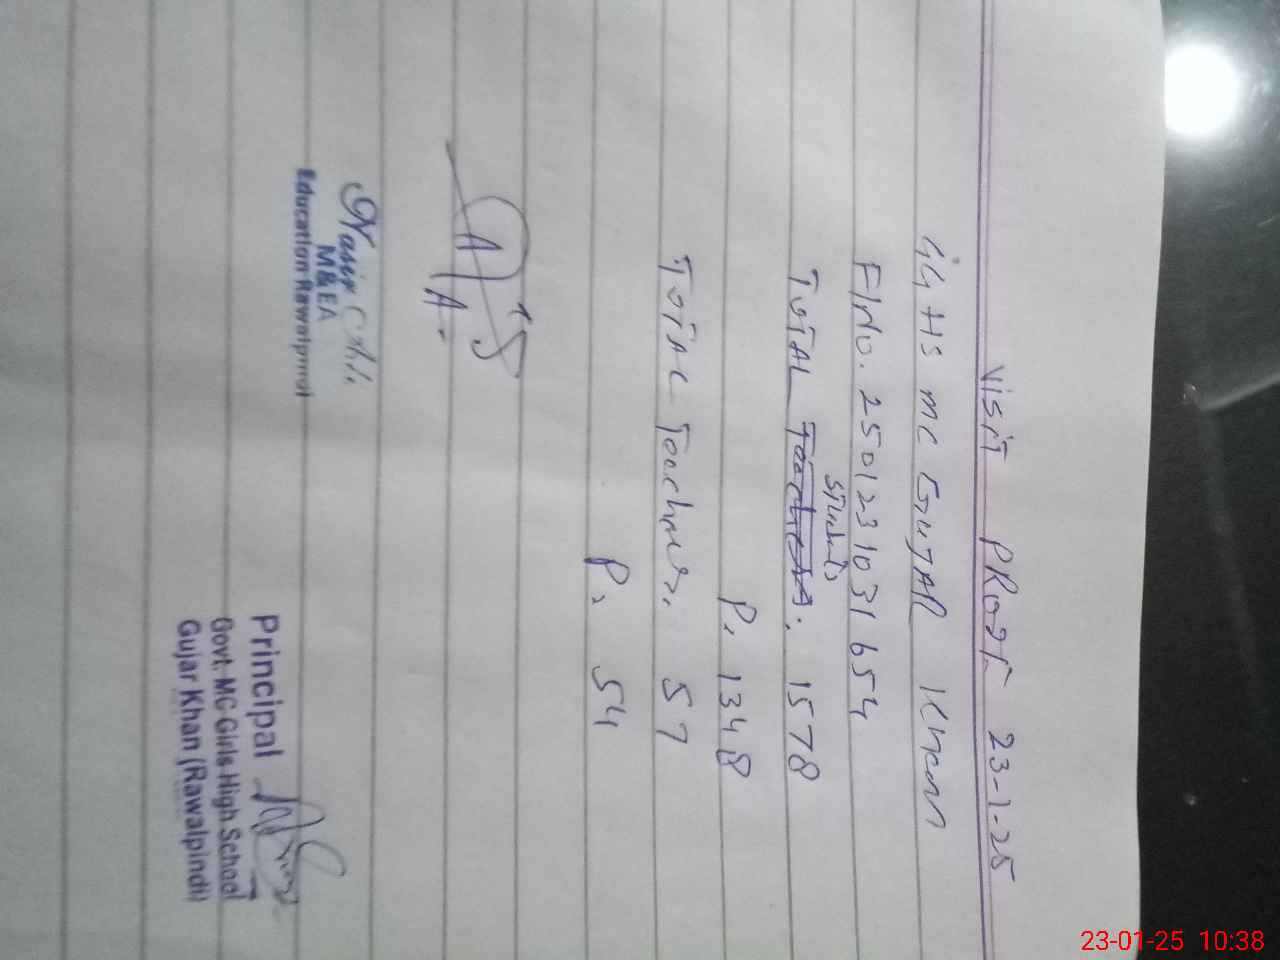 Visit PRooF 23-1-25
GGHS MC GUJAR Khan
F/No. 2501231031654
Students
TOTAL Teachers: 1578
P. 1348
TOTAL Teachers. 57
P. 54
Nasir Ali
M&EA
Education Rawalpindi
Principal
Govt. MC Girls High School
Gujar Khan (Rawalpindi)
23-01-25 10:38